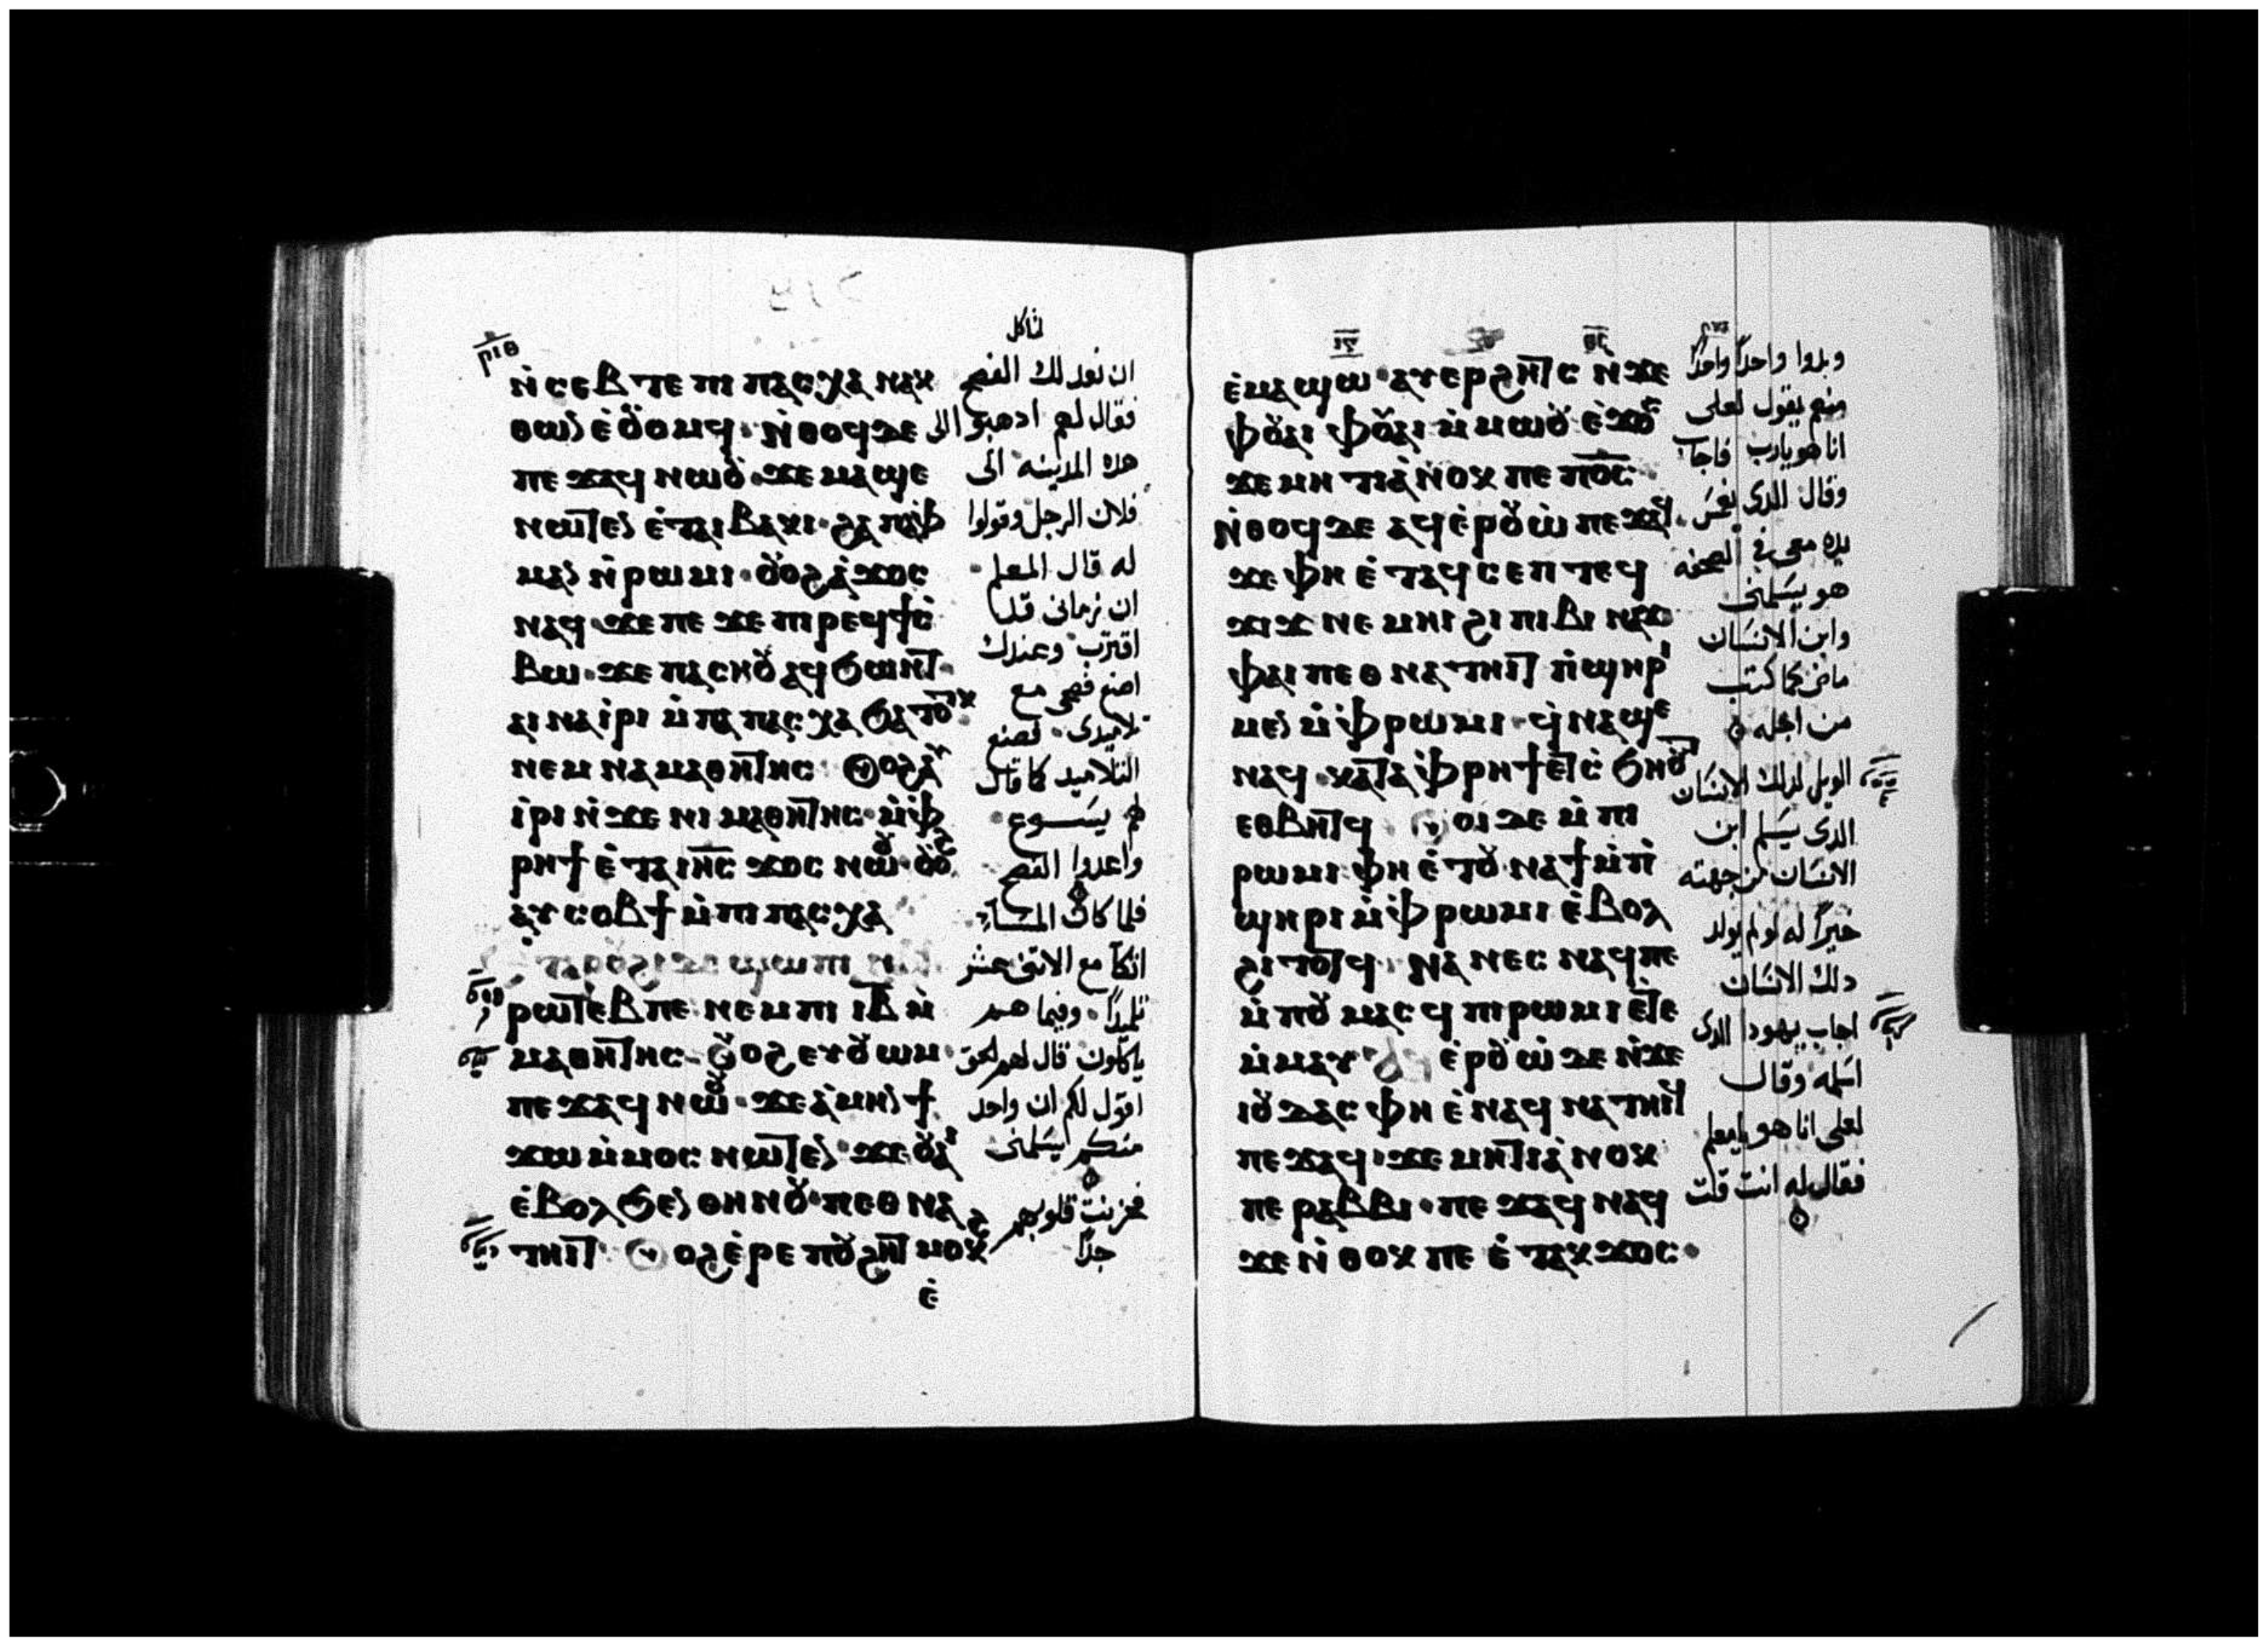 ⲣⲓⲑ
ⲛ̀ⲥⲉⲃⲧⲉ ⲡⲓ ⲡⲁⲥⲭⲁ ⲛⲁⲕ
ⲑⲱⲛ ⲉ̀ⲟⲩⲟⲙϥ · ⲛ̀ⲑⲟϥ ⲇⲉ
ⲡⲉϫⲁϥ ⲛⲱⲟⲩ · ϫⲉ ⲙⲁϣⲉ
ⲛⲱⲧⲉⲛ ⲉ̀ⲧⲁⲓ ⲃⲁⲕⲓ · ϩⲁ ⲡⲁⲫ
ⲙⲁⲛ ⲛ̀ⲣⲱⲙⲓ · ⲟⲩⲟϩ ⲁ̀ϫⲟⲥ
ⲛⲁϥ ϫⲉ ⲡⲉϫⲉ ⲡⲓⲣⲉϥϯⲥ̀
ⲃⲱ · ϫⲉ ⲡⲁⲥⲏⲟⲩ ⲁϥϧⲱⲛⲧ
ⲁⲓⲛⲁⲓ̀ⲣⲓ ⲙ̀ⲡⲁ ⲡⲁⲥⲭⲁ ϧⲁⲧⲟⲧⲕ
ⲛⲉⲙ ⲛⲁⲙⲁⲑⲏⲧⲏⲥ ⲟⲩⲟϩ ⲁⲩ
ⲓ̀ⲣⲓ ⲛ̀ϫⲉ ⲛⲓ ⲙⲁⲑⲏⲧⲏⲥ · ⲙ̀ⲫ̀
ⲣⲏϯ ⲉ̀ⲧⲁ ⲓⲏ̅ⲥ̅ ϫⲟⲥ ⲛⲱⲟⲩ · ⲟⲩⲟϩ
ⲁⲩⲥⲟⲃϯ ⲙ̀ⲡⲓ ⲡⲁⲥⲭⲁ
ⲉⲧⲁ ⲣⲟⲩϩⲓ ⲇⲉ ϣⲱⲡⲓ ⲛⲁϥ
ⲣⲱⲧⲉⲃ ⲡⲉ ⲛⲉⲙ ⲡⲓ ⲓ̅ⲃ̅ ⲙ̀
ⲙⲁⲑⲏⲧⲏⲥ · ⲟⲩⲟϩ ⲉⲩⲟⲩⲱⲙ ·
ⲡⲉϫⲁϥ ⲛⲱⲟⲩ · ϫⲉ ⲁ̀ⲙⲏⲛ ϯ
ϫⲱ ⲙ̀ⲙⲟⲥ ⲛⲱⲧⲉⲛ · ϫⲉ ⲟⲩⲁⲓ
ⲉ̀ⲃⲟⲗ ϧⲉⲛ ⲑⲏⲛⲟⲩ · ⲡⲉⲑⲛⲁ
ⲧⲏⲓⲧ · ⲟⲩⲟϩ ⲉ̀ⲣⲉ ⲡⲟⲩϩⲏⲧ ⲙⲟⲕϩ
ⲉ̀
لناكل
ان نعد لك الفصح
فقال لهم ادهبو الى
هده المدينه الى
فلان الرجل وقولوا
له قال المعلم
ان زمانى قد
اقترب وعندك
اصنع فصحى مع
تلاميدى فصنع
التلاميد كما قال
لهم يسوع
واعدوا الفصح
فلما كان المساء
اتكا مع الاثنى عشر
تلميدًا وفيما هم
ياكلون قال لهم الحق
اقول لكم ان واحد
منكم يسلمنى
فحزنت قلوبهم
جدًا
ⲉ̀ⲙⲁϣⲱ · ⲁⲩⲉⲣϩⲏⲧⲥ ⲛ̀ϫⲉ
ⲫⲟⲩⲁⲓ ⲫⲟⲩⲁⲓ ⲙ̀ⲙⲱⲟⲩ ⲉ̀ϫⲟⲥ
ϫⲉ ⲙⲏⲧⲓ ⲁ̀ⲛⲟⲕ ⲡⲉ ⲡ̅ⲟ̅ⲥ̅ ·
ⲛ̀ⲑⲟϥ ⲇⲉ ⲁϥⲉ̀ⲣⲟⲩⲱ̀ ⲡⲉϫⲁϥ ·
ϫⲉ ⲫⲏ ⲉ̀ⲧⲁϥⲥⲉⲡ ⲧⲉϥ
ϫⲓϫ ⲛⲉⲙⲏⲓ ϩⲓ ⲡⲓⲃⲓⲛⲁϫ
ⲫⲁⲓ ⲡⲉⲑⲛⲁⲧⲏⲓⲧ ⲡ̀ϣⲏⲣⲓ
ⲙⲉⲛ ⲙ̀ⲫ̀ⲣⲱⲙⲓ · ϥ̀ⲛⲁϣⲉ
ⲛⲁϥ · ⲕⲁⲧⲁ ⲫ̀ⲣⲏϯ ⲉⲧⲥ̀ϧⲏⲟⲩⲧ
ⲉⲑⲃⲏⲧϥ ⲟⲩⲟⲓ ⲇⲉ ⲙ̀ⲡⲓ
ⲣⲱⲙⲓ ⲫⲏ ⲉ̀ⲧⲟⲩⲛⲁϯ ⲙ̀ⲡ̀
ϣⲏⲣⲓ ⲙ̀ⲫ̀ⲣⲱⲙⲓ ⲉ̀ⲃⲟⲗ
ϩⲓⲧⲟⲧϥ · ⲛⲁⲛⲉⲥ ⲛⲁϥ ⲡⲉ
ⲙ̀ⲡⲟⲩⲙⲁⲥϥ ⲡⲓⲣⲱⲙⲓ ⲉⲧⲉ
ⲙ̀ⲙⲁⲩ ⲁϥⲉ̀ⲣⲟⲩⲱ̀ ⲇⲉ ⲛ̀ϫⲉ
ⲓⲟⲩⲇⲁⲥ ⲫⲏ ⲉ̀ⲛⲁϥⲛⲁⲧⲏⲓϥ
ⲡⲉϫⲁϥ · ϫⲉ ⲙⲏⲧⲓ ⲁ̀ⲛⲟⲕ
ⲡⲉ ⲣⲁⲃⲃⲓ · ⲡⲉϫⲁϥ ⲛⲁϥ
ϫⲉ ⲛ̀ⲑⲟⲕ ⲡⲉ ⲉ̀ⲧⲁⲕϫⲟⲥ ·
وبدوا واحدًا واحدًا
منهم يقول لعلى
انا هو يارب فاجاب
وقال الدى يغمس
يده معى فى الصحفه
هو يسلمنى
وابن الانسان
ماض كما كتب
من اجله
الويل لدلك الانسان
الدى يسلم ابن
الانسان من جهته
خيرًا له لو لم يولد
دلك الانسان
اجاب يهودا الدى
اسلمه وقال
لعلى انا هو يامعلم
فقال له انت قلت